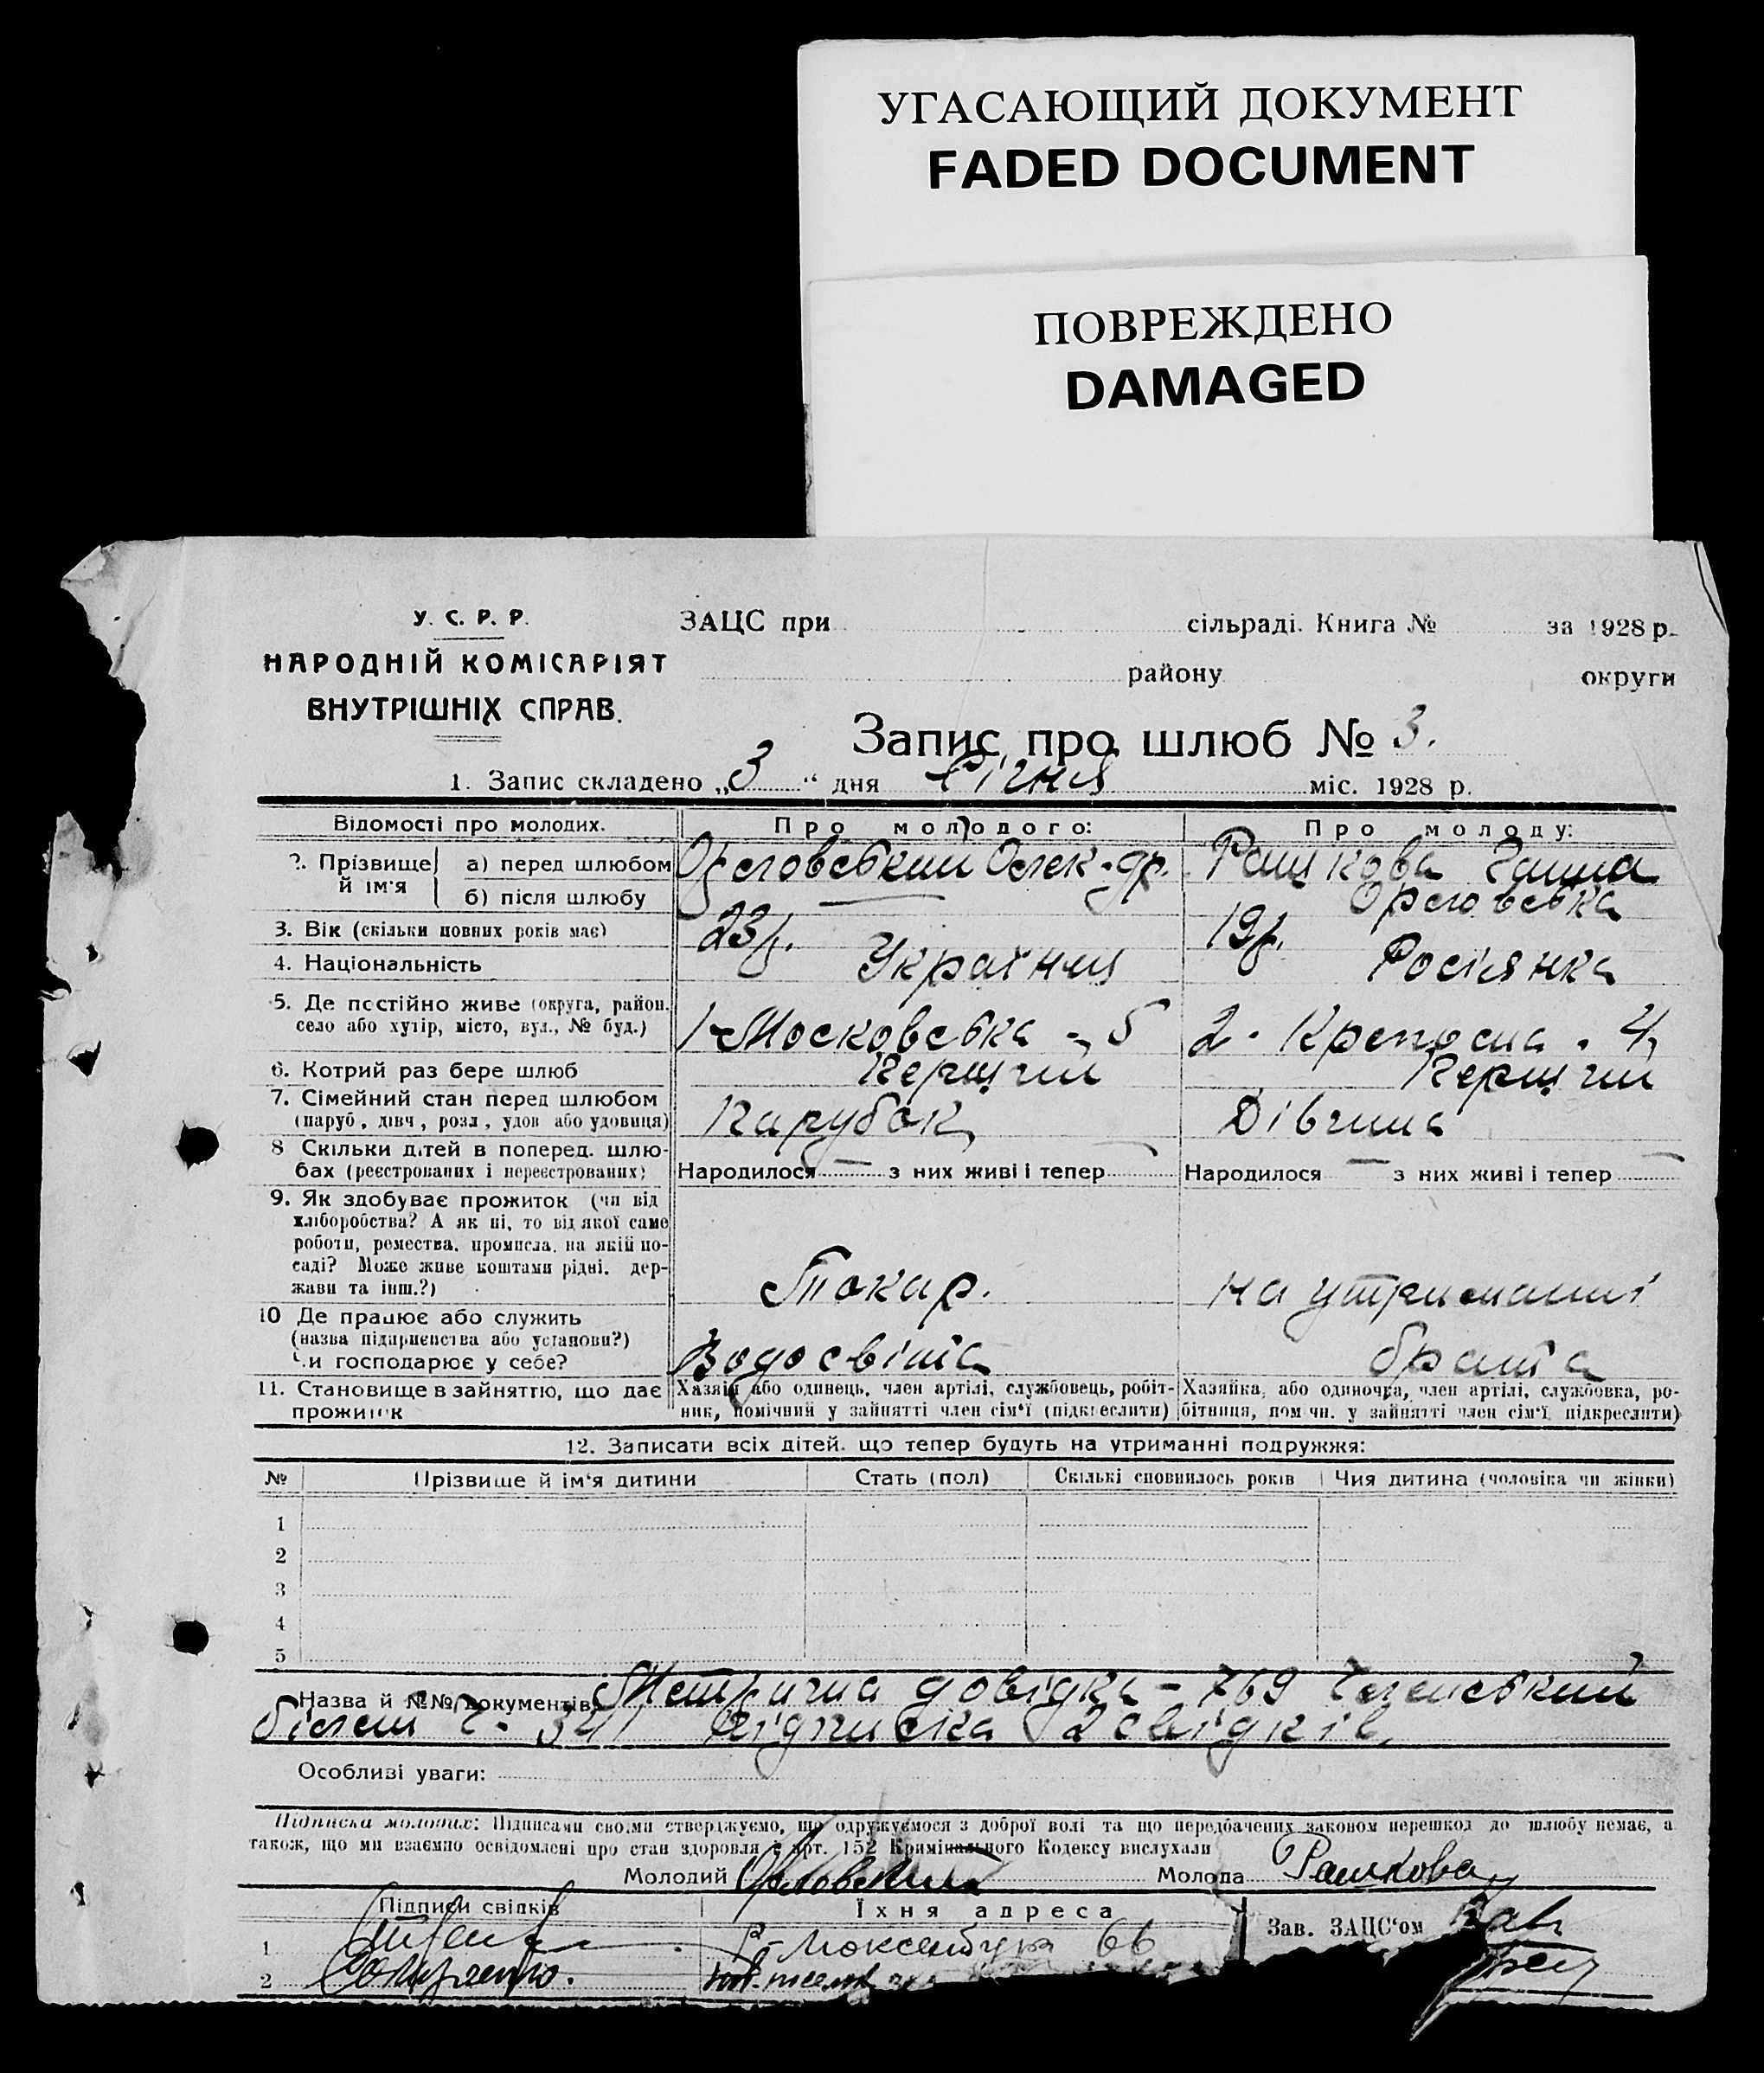 УГАСАЮЩИЙ ДОКУМЕНТ
FADED DOCUMENT
ПОВРЕЖДЕНО
DAMAGED
У. С. Р. Р.
НАРОДНІЙ КОМІСАРІЯТ
ВНУТРІШНІХ СПРАВ.
ЗАЦС при сільраді. Книга № за 1928 р.
району округи
Запис про шлюб № 3.
1. Запис складено „3“ дня Січня міс. 1928 р.
Відомості про молодих. Про молодого: Про молоду:
2. Прізвище й ім'я
а) перед шлюбом Орловський Олек-др. Рашкова Ганна
б) після шлюбу — Орловська
3. Вік (скільки повних років має) 23 р. 19 р.
4. Національність Українец Росіянка
5. Де постійно живе (округа, район, село або хутір, місто, вул., № буд.) 1-Московська - 5 2 - Крепосна - 4
6. Котрий раз бере шлюб Перший Перший
7. Сімейний стан перед шлюбом (паруб., дівч., розл., удов або удовиця) Парубок Дівчина
8 Скільки дітей в поперед. шлюбах (реєстрованих і нереєстрованих) Народилося — з них живі і тепер — Народилося — з них живі і тепер —
9. Як здобуває прожиток (чи від хліборобства? А як ні, то від якої саме роботи, ремества, промисла, на якій посаді? Може живе коштами рідні, держави та інш.?) Токар. на утриманні
10 Де працює або служить (назва підприємства або установи?) Чи господарює у себе? Водосвіта брата
11. Становище в зайняттю, що дає прожиток
Хазяїн або одинець, член артілі, службовець, робітник, помічний у зайнятті член сім'ї (підкреслити)
Хазяйка, або одиночка, член артілі, службовка, робітниця, помічн. у зайнятті член сім'ї, підкреслити)
12. Записати всіх дітей, що тепер будуть на утриманні подружжя:
№ Прізвище й ім'я дитини Стать (пол) Скількі сповнилось років Чия дитина (чоловіка чи жінки)
1
2
3
4
5
Назва й №№ документів: Метрична довідка - 769
білет Ч. 341 підписка 2 свідків.
Особливі уваги:
Підписка молодих: Підписами своїми стверджуємо, що одружуємося з доброї волі та що передбачених законом перешкод до шлюбу немає, а
також, що ми взаємно освідомлені про стан здоровля й арт. 152 Кримінального Кодексу вислухали
Молодий Орловский Молода Рашкова
Підписи свідків Їхня адреса Зав. ЗАЦС'ом
1 66
2